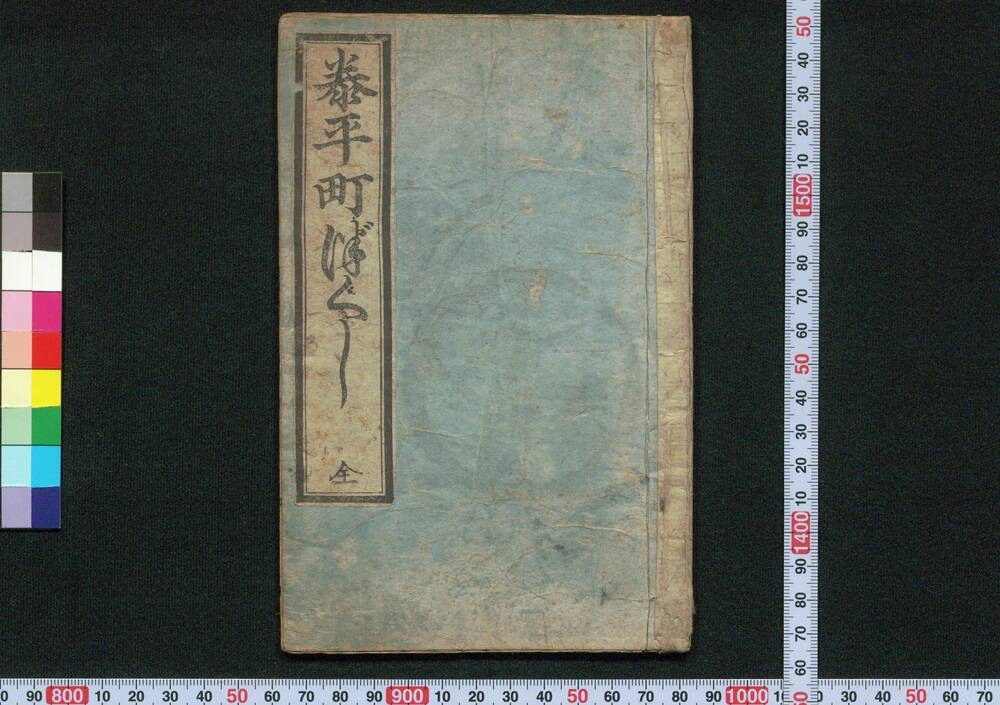 泰平町づくし
全
50
40
30
20
10
1500
90
80
70
60
50
40
30
20
10
1400
90
80
70
60
50
0 90 800 10 20 30 40 50 60 70 80 90 900 10 20 30 40 50 60 70 80 90 1000 1 30 40 50 60 70